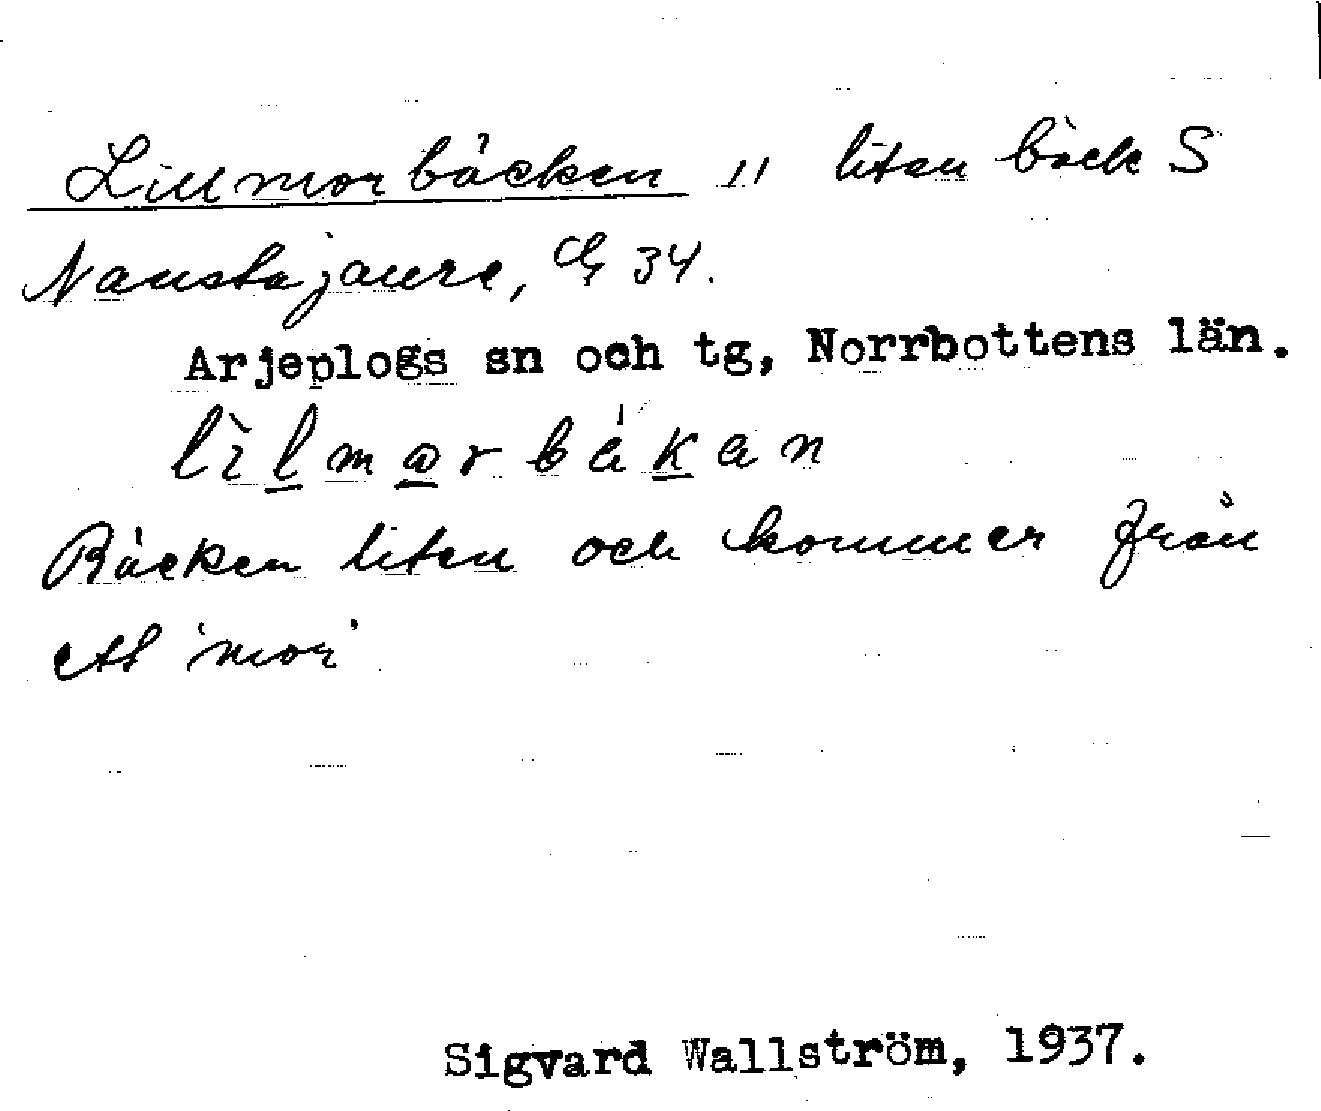 Lillmorbäcken " liten bäck S
Naustajaure, G 34.
Arjeplogs sn och tg, Norrbottens län.
lìlmɷrbäkan
Bäcken liten och kommer från
ett 'mor'
Sigvard Wallström, 1937.